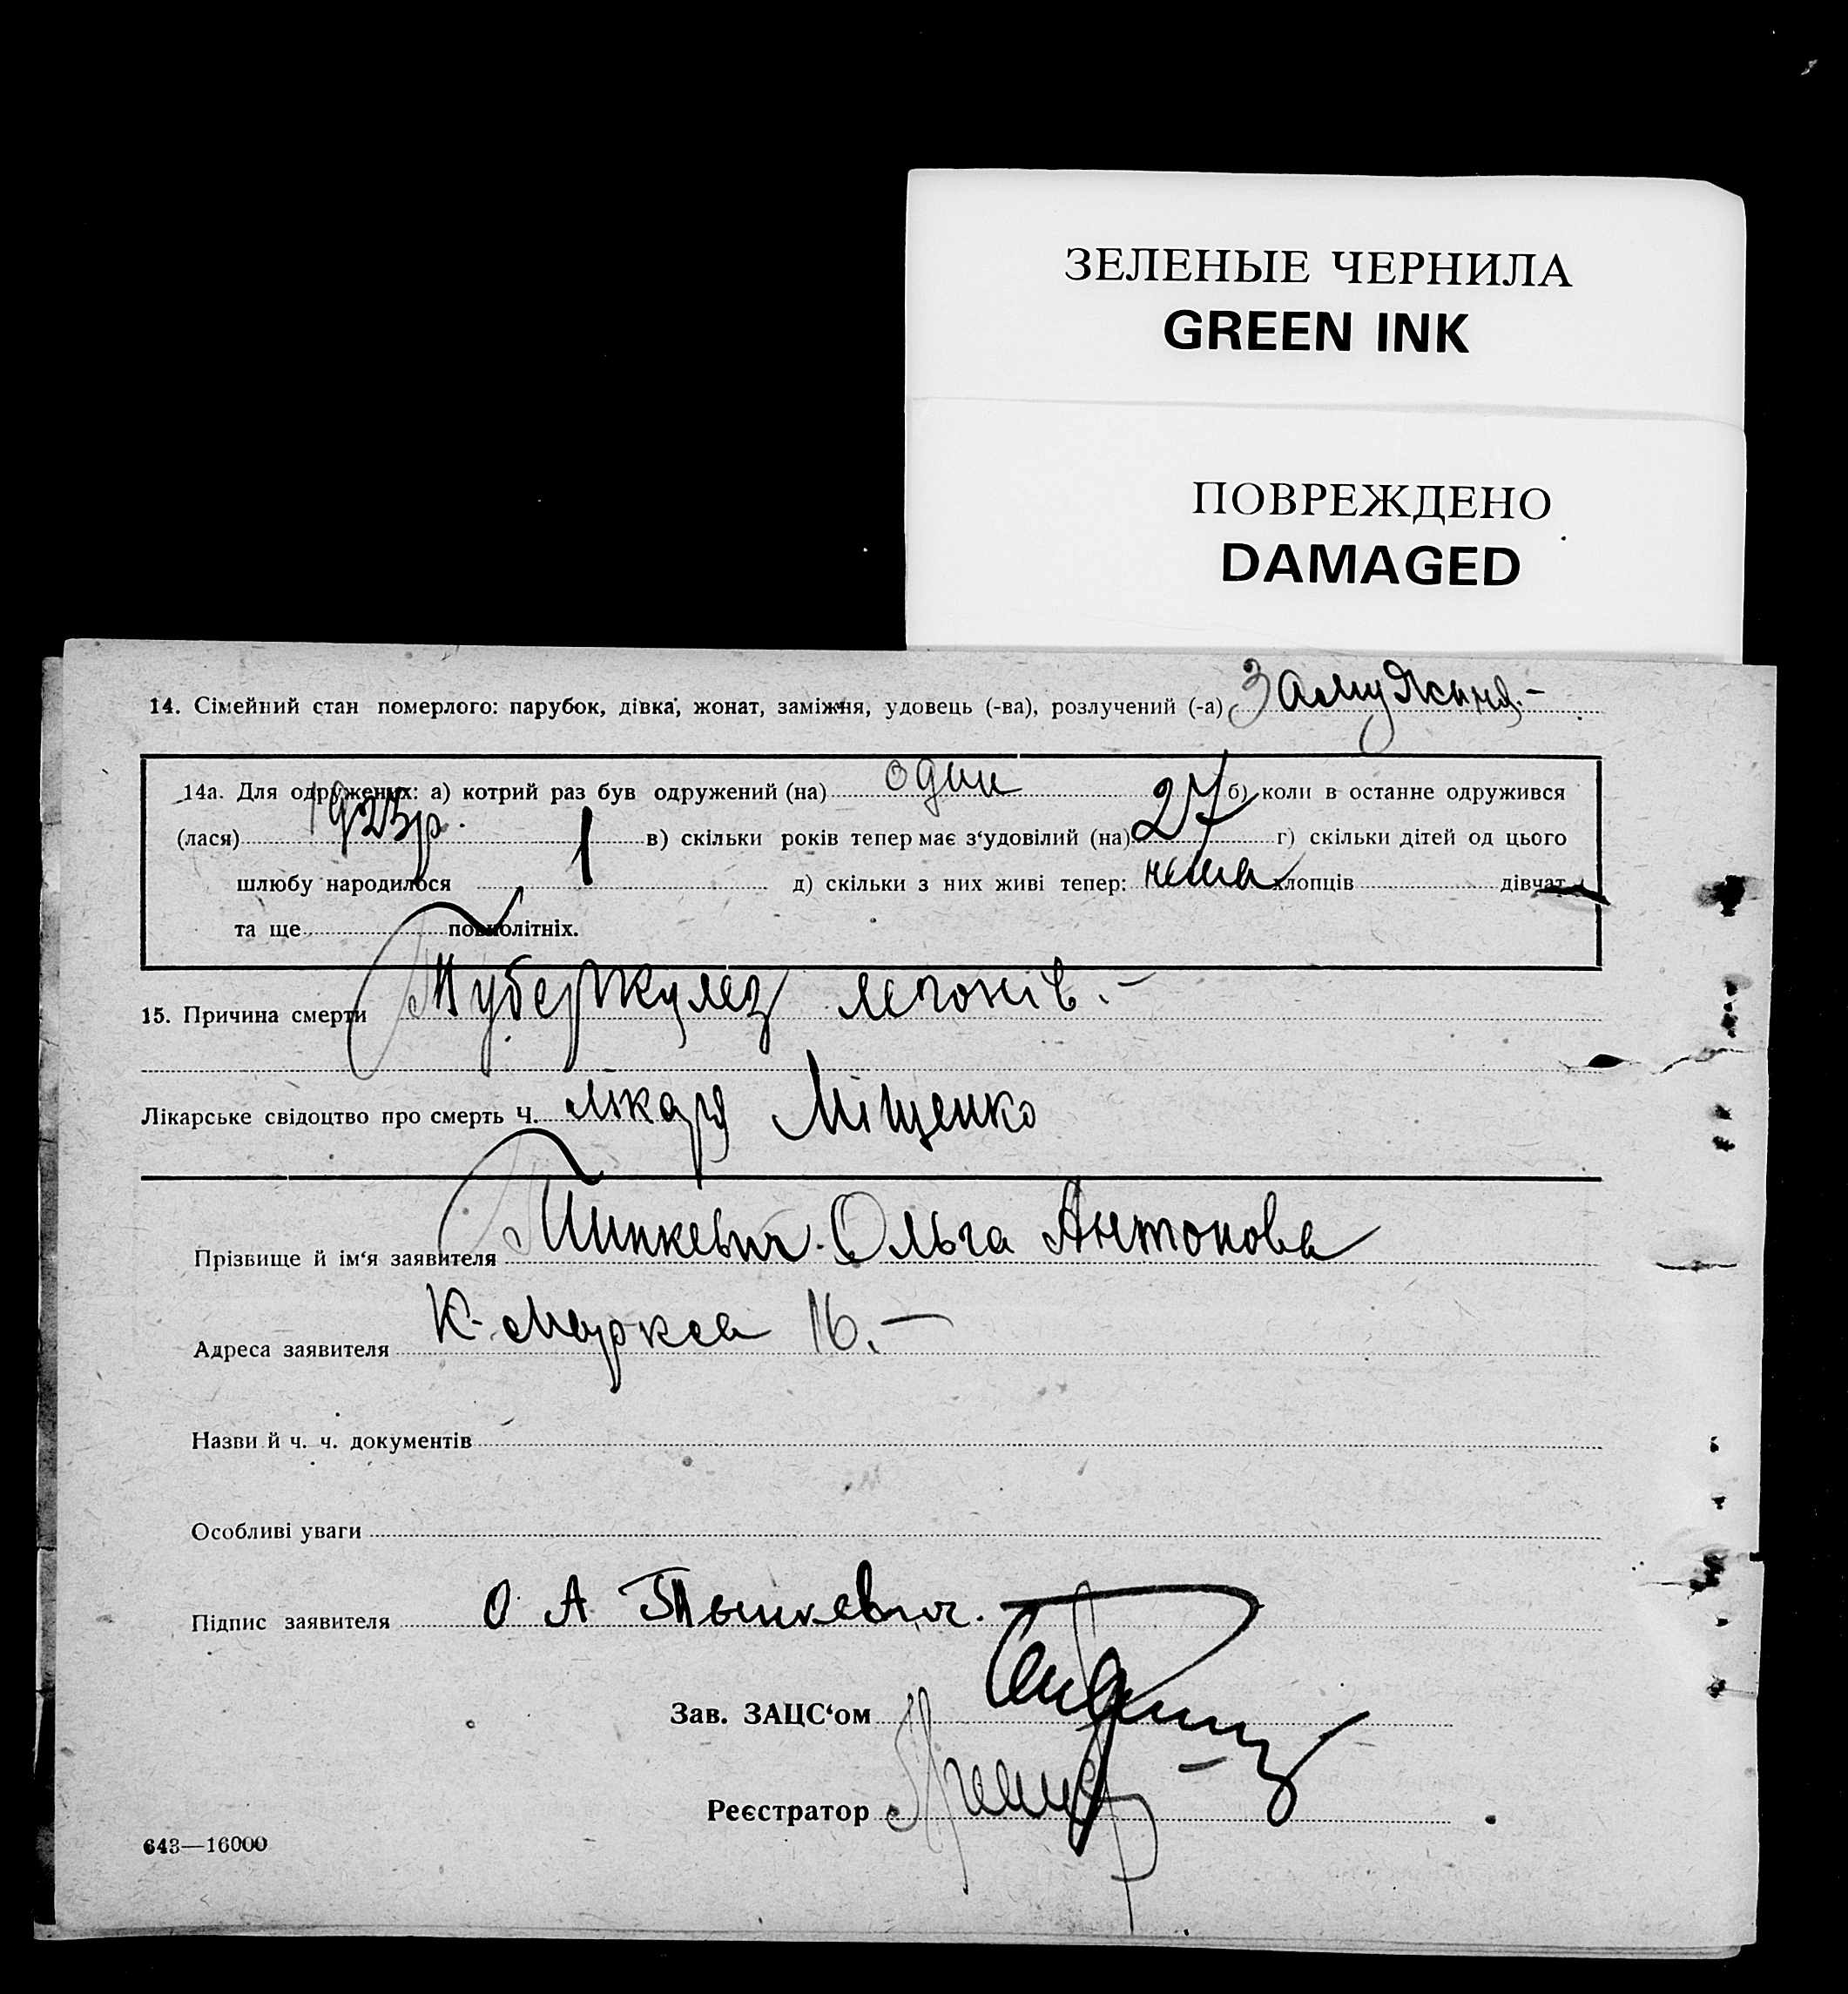 ЗЕЛЕНЫЕ ЧЕРНИЛА
GREEN INK
ПОВРЕЖДЕНО
DAMAGED
14. Сімейний стан померлого: парубок, дівка, жонат, заміжня, удовець (-ва), розлучений (-а) Замужня.-
14а. Для одружених: а) котрий раз був одружений (на) один б) коли в останне одружився
(лася) 1923р. в) скільки років тепер має з‘удовілий (на) 27 г) скільки дітей од цього
шлюбу народилося 1 д) скільки з них живі тепер: нема хлопців дівчат
та ще повнолітніх.
15. Причина смерти Туберкулез легенів.-
Лікарське свідоцтво про смерть Ч. лікаря Міщенко
Прізвище й ім‘я заявителя Тишкевич Ольга Антонова
Адреса заявителя К-Маркса 16.-
Назви й ч. ч. документів
Особливі уваги
Підпис заявителя О А Тышкевич.
Зав. ЗАЦС‘ом
Реєстратор
643—16000